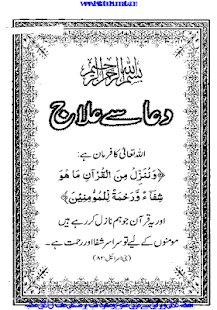 بسم الله الرحمن الرحيم
دعا سے علاج
اللہ تعالیٰ کا فرمان ہے:
﴿وَنُنَزِّلُ مِنَ الْقُرْآنِ مَا هُوَ
شِفَاءٌ وَرَحْمَةٌ لِلْمُؤْمِنِينَ﴾
اور یہ قرآن جو ہم نازل کر رہے ہیں
مومنوں کے لیے تو سراسر شفا اور رحمت ہے۔
(بنی اسرائیل: ۸۲)